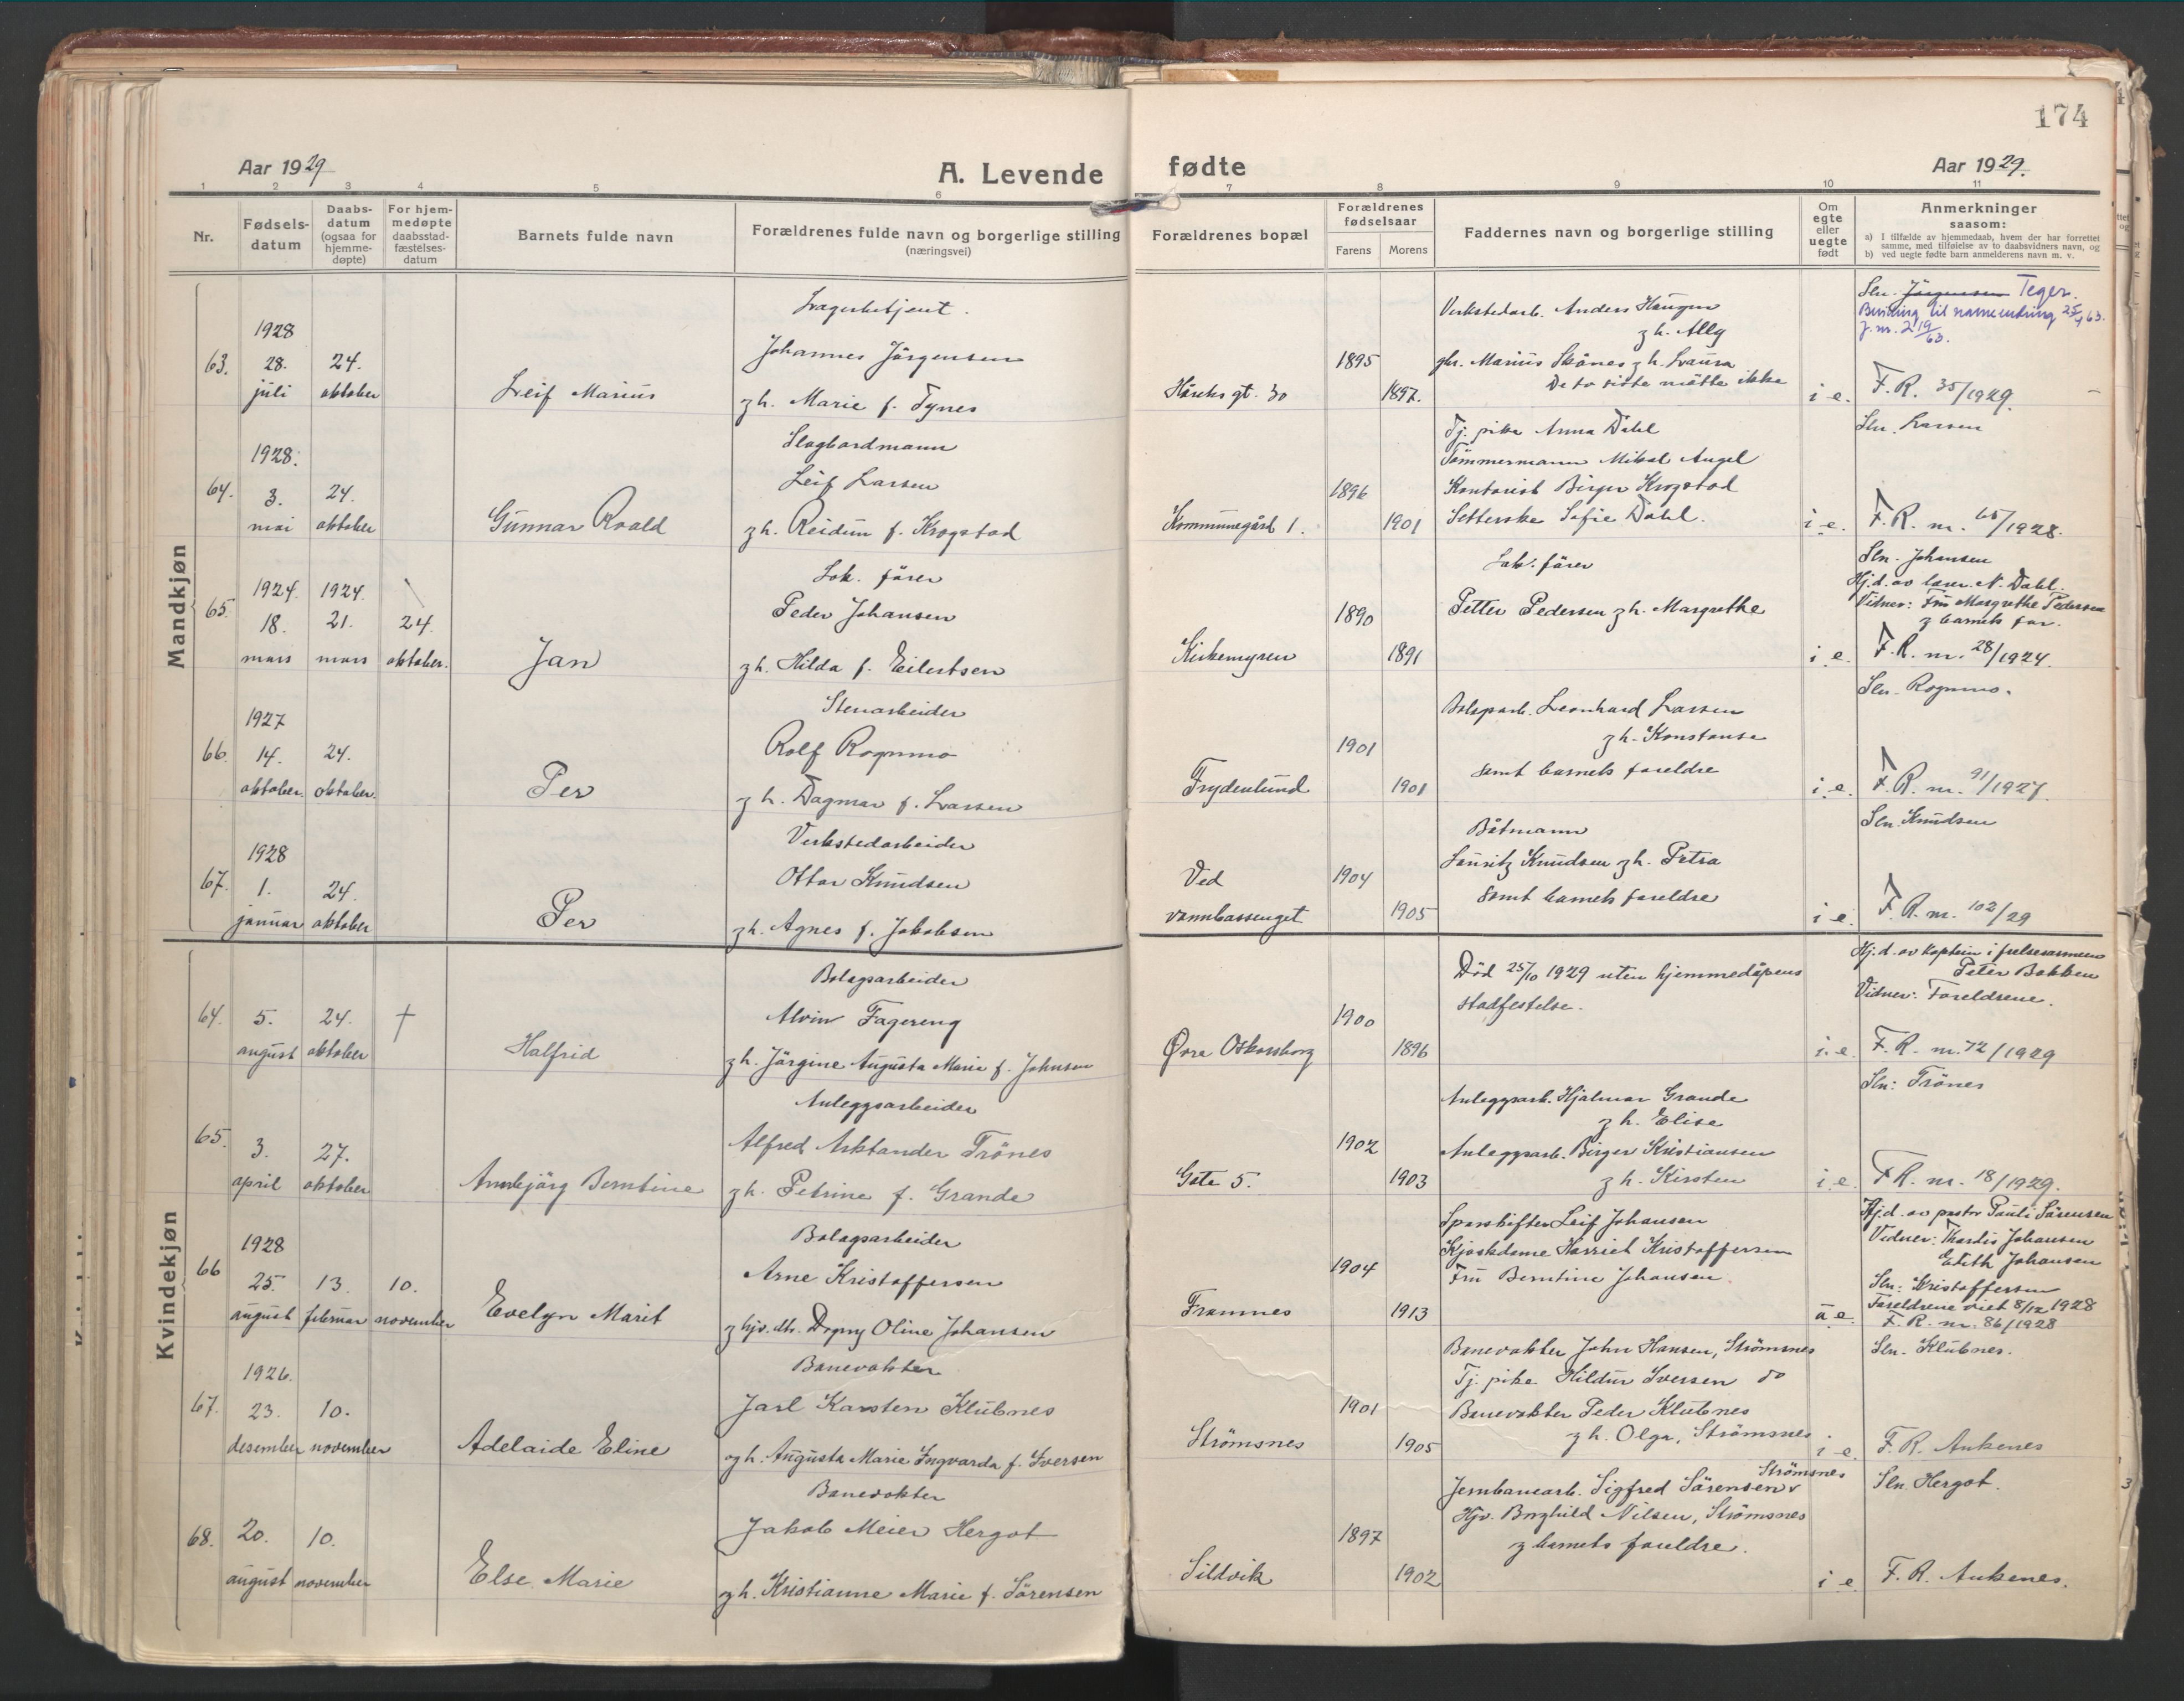 174
Aar 1929
A. Levende fødte
Aar 1929.
1 2 3 4 5 6 7 8 9 10 11
Nr.
Fødsels-
datum
Daabs-
datum
(ogsaa for
hjemme-
døpte)
For hjem-
medøpte
daabsstad-
fæstelses-
datum
Barnets fulde navn
Forældrenes fulde navn og borgerlige stilling
(næringsvei)
Forældrenes bopæl
Forældrenes
fødselsaar
Farens
Morens
Faddernes navn og borgerlige stilling
Om
egte
eller
uegte
født
Anmerkninger
saasom:
a) I tilfælde av hjemmedaab, hvem der har forrettet
samme, med tilføielse av to daabsvidners navn, og
b) ved uegte fødte barn anmelderens navn m. v.
Mandkjøn
63.
1928
28.
juli
24.
oktober
Leif Marius
Lagerbetjent.
Johannes Jörgensen
g h. Marie f. Tynes
Håreks gt. 30
1895
1897.
Verkstedarb. Anders Haugen
g h. Ally
gbr. Marius Skånes g h. Laura
De to siste møtte ikke
i e.
Sln. Jörgensen Teger.
Bevilling til navneendring 25/9 63.
J. nr. 219/63.
F. R. 35/1929.
64.
1928.
3.
mai
24.
oktober
Gunnar Roald
Slagbordmann
Leif Larsen
g h. Reidun f. Krogstad
Kommunegård 1.
1896
1901
Tj. pike Anna Dahl
Tömmermann Mikal Angel
Kontorist Birger Krogstad
Setterske Sofie Dahl.
i e.
Sln. Larsen
F. R. nr. 65/1928.
65.
1924.
18.
mars
1924.
21.
mars
24.
oktober.
Jan
Lok. förer
Peder Johansen
g h. Hilda f. Eilertsen
Kirkemyren
1890
1891
Lok. förer
Petter Pedersen g h. Margrethe
i e.
Sln. Johansen
Hj. d. av lærer N. Dahl.
Vidner: Fru Margrethe Pedersen
g barnets far.
F. R. nr. 28/1924.
66.
1927
14.
oktober.
24.
oktober.
Per
Stenarbeider
Rolf Rognmo
g h. Dagmar f. Larsen
Frydenlund
1901
1901
Bolagsarb. Leonhard Larsen
g h. Konstanse
samt barnets foreldre
i e.
Sln. Rognmo.
F. R. nr. 91/1927.
67.
1928
1.
januar
24.
oktober
Per
Verkstedarbeider
Ottar Knudsen
g h. Agnes f. Jakobsen
Ved
vannbassenget
1904
1905
Båtmann
Lauritz Knudsen g h. Petra
samt barnets foreldre
i e.
Sln. Knudsen
F. R. nr. 102/29
Kvindekjøn
64.
5.
august
24.
oktober
†
Halfrid
Bolagsarbeider
Alvin Fagereng
g h. Jörgine Augusta Marie f. Johnsen
Övre Oskarsborg
1900
1896
Död 25/10 1929 uten hjemmedåpens
stadfestelse.
i. e.
Hj. d. av kaptein i frelsesarmeen
Peter Bakken
Vidner: Foreldrene.
F. R. nr. 72/1929
65.
3.
april
27.
oktober
Annbjörg Berntine
Anleggsarbeider
Alfred Arktander Trönes
g h. Petrine f. Grande
Gate 5.
1902
1903
Anleggsarb. Hjalmar Grande
g h. Elise
Anleggsarb. Birger Kristiansen
g h. Kirsten
i. e.
Sln: Trönes
F R. nr. 18/1929.
66
1928
25.
august
13.
februar
10.
november
Evelyn Marit
Bolagsarbeider
Arne Kristoffersen
g hjv. dtr. Dagny Oline Johansen
Framnes
1904
1913
Sporskifter Leif Johansen
Kjoskdame Harriet Kristoffersen
Fru Berntine Johansen.
u e.
Hj. d. av pastor Pauli Sörensen
Vidner: Thordis Johansen
Edith Johansen
Sln: Kristoffersen
Foreldrene viet 8/12 1928
F. R. nr. 86/1928
67.
1926.
23.
desember
10.
november
Adelaide Eline
Banevokter
Jarl Karsten Klubnes
og h. Augusta Marie Ingvarda f. Iversen
Strömsnes
1901
1905
Banevokter John Hansen, Strömsnes
Tj. pike Hildur Iversen do
Banevokter Peder Klubnes
g h. Olga, Strömsnes
i e.
Sln. Klubnes.
F. R. Ankenes
68.
20.
august
10.
november
Else Marie
Banevokter
Jakob Meier Hergot
og h. Kristianne Marie f. Sörensen
Sildvik
1897
1902
Strömsnes
Jernbanearb. Sigfred Sörensen
Hjv. Borghild Nilsen, Strömsnes
g barnets foreldre.
i e.
Sln. Hergot.
F. R. Ankenes.